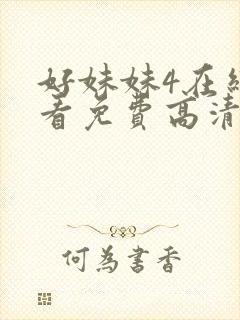 好妹妹4在线
看免费高清
何為書香